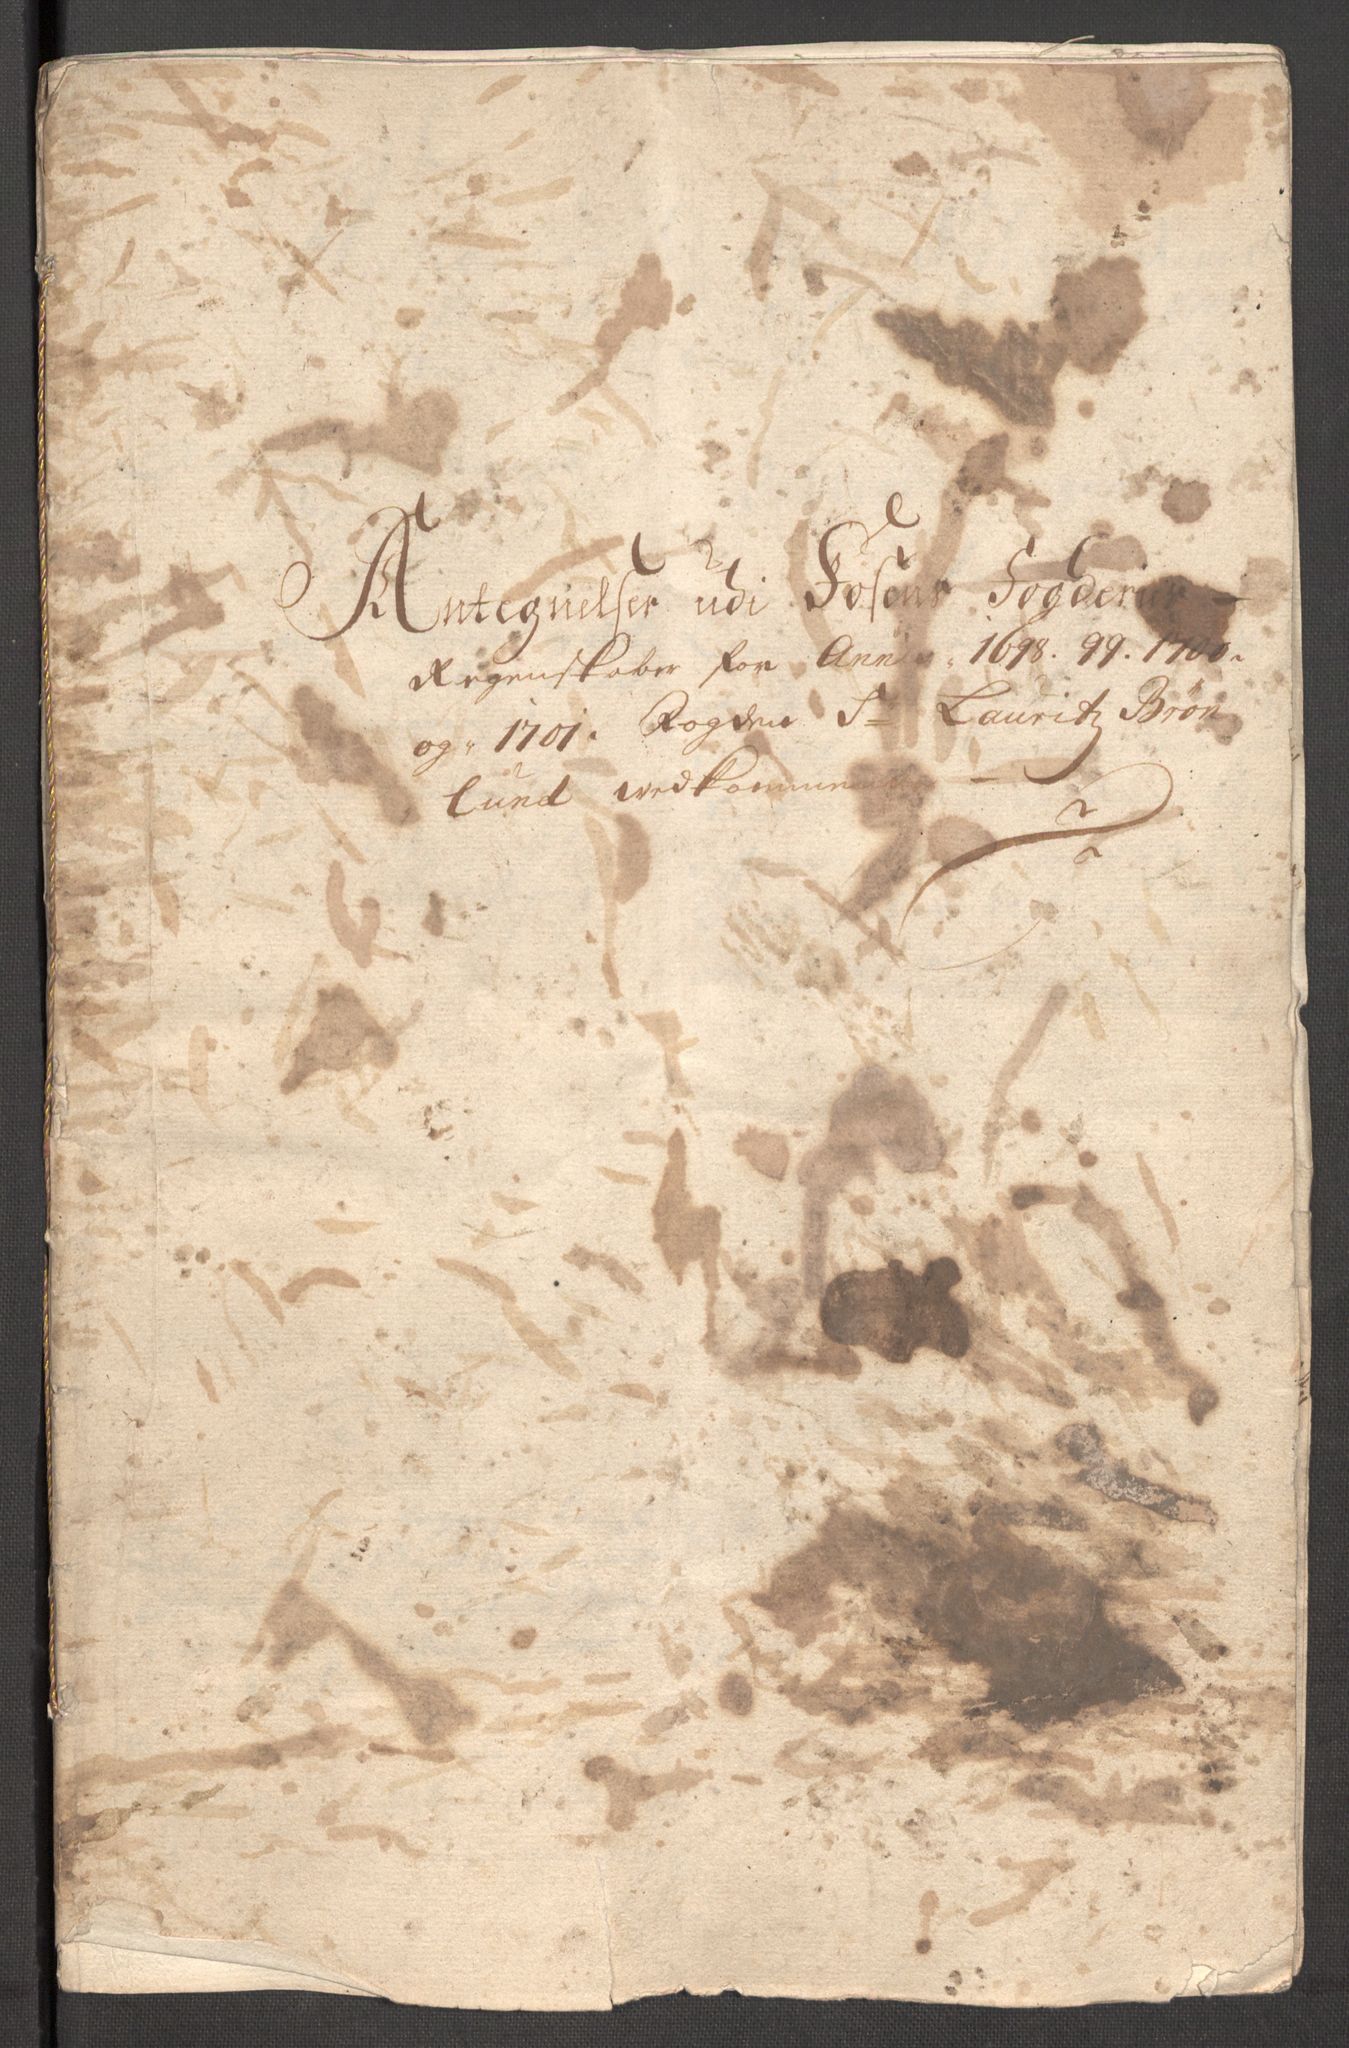 Antegnelser udi Fosens Fogderies
Regenskaber for Anno 1698. 99. 1700.
og 1701. Fogden Sr Lauritz Brön
Lund vedkommende